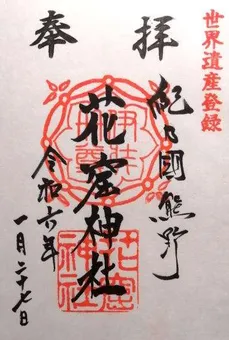 世界遺産登録
奉拝
紀乃國熊野
花窟神社
令和六年
一月二十七日
花窟神社